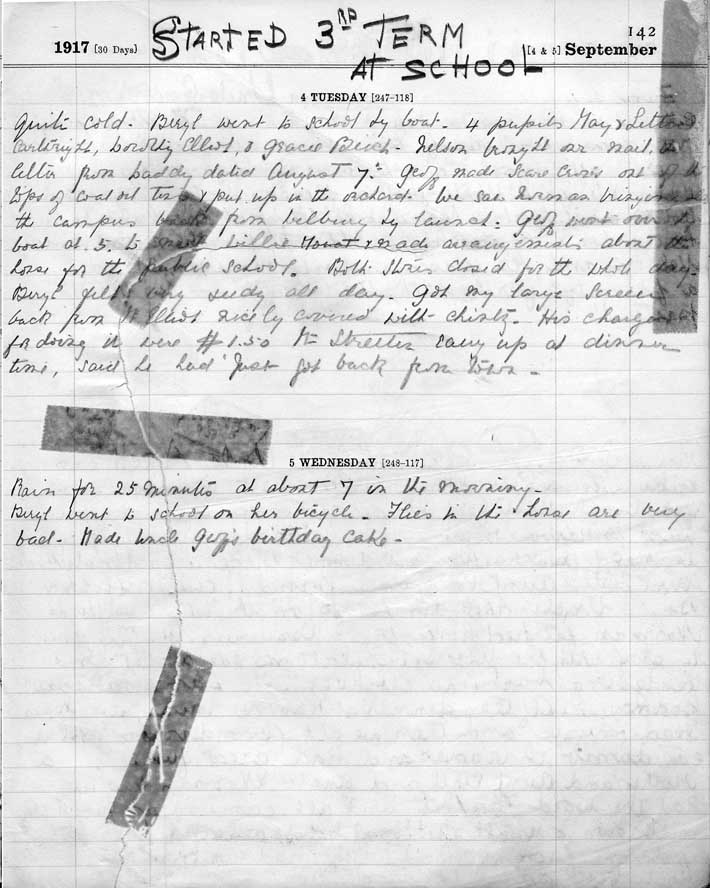 142
1917 [30 Days] STARTED 3RD TERM [4 & 5] September
AT SCHOOL
4 TUESDAY [247-118]
Quite cold. Beryl went to school by boat. 4 pupils May & Letty
Cartwright, Dorothy Elliot & Gracie Birch. Nelson brought our mail,
letter from Daddy dated August 7th. Geoff made Scare Crows out of the
tops of coal oil tins & put up in the orchard. We saw bringing
the campus back from by launch. Geoff went over
boat at 5 to Willie & made arrangements about the
horse for the public school. Both Stores closed for the whole day.
Beryl felt very seedy all day. Got my large Screen
back from Mr Elliot nicely covered with chintz. His charges
for doing it were $1.50 Mr Streeter came up at dinner
time, said he had just got back from town.
5 WEDNESDAY [248-117]
Rain for 25 minutes at about 7 in the morning.
Beryl went to school on her bicycle. Flies in the house are very
bad. Made Uncle Geoff's birthday cake.